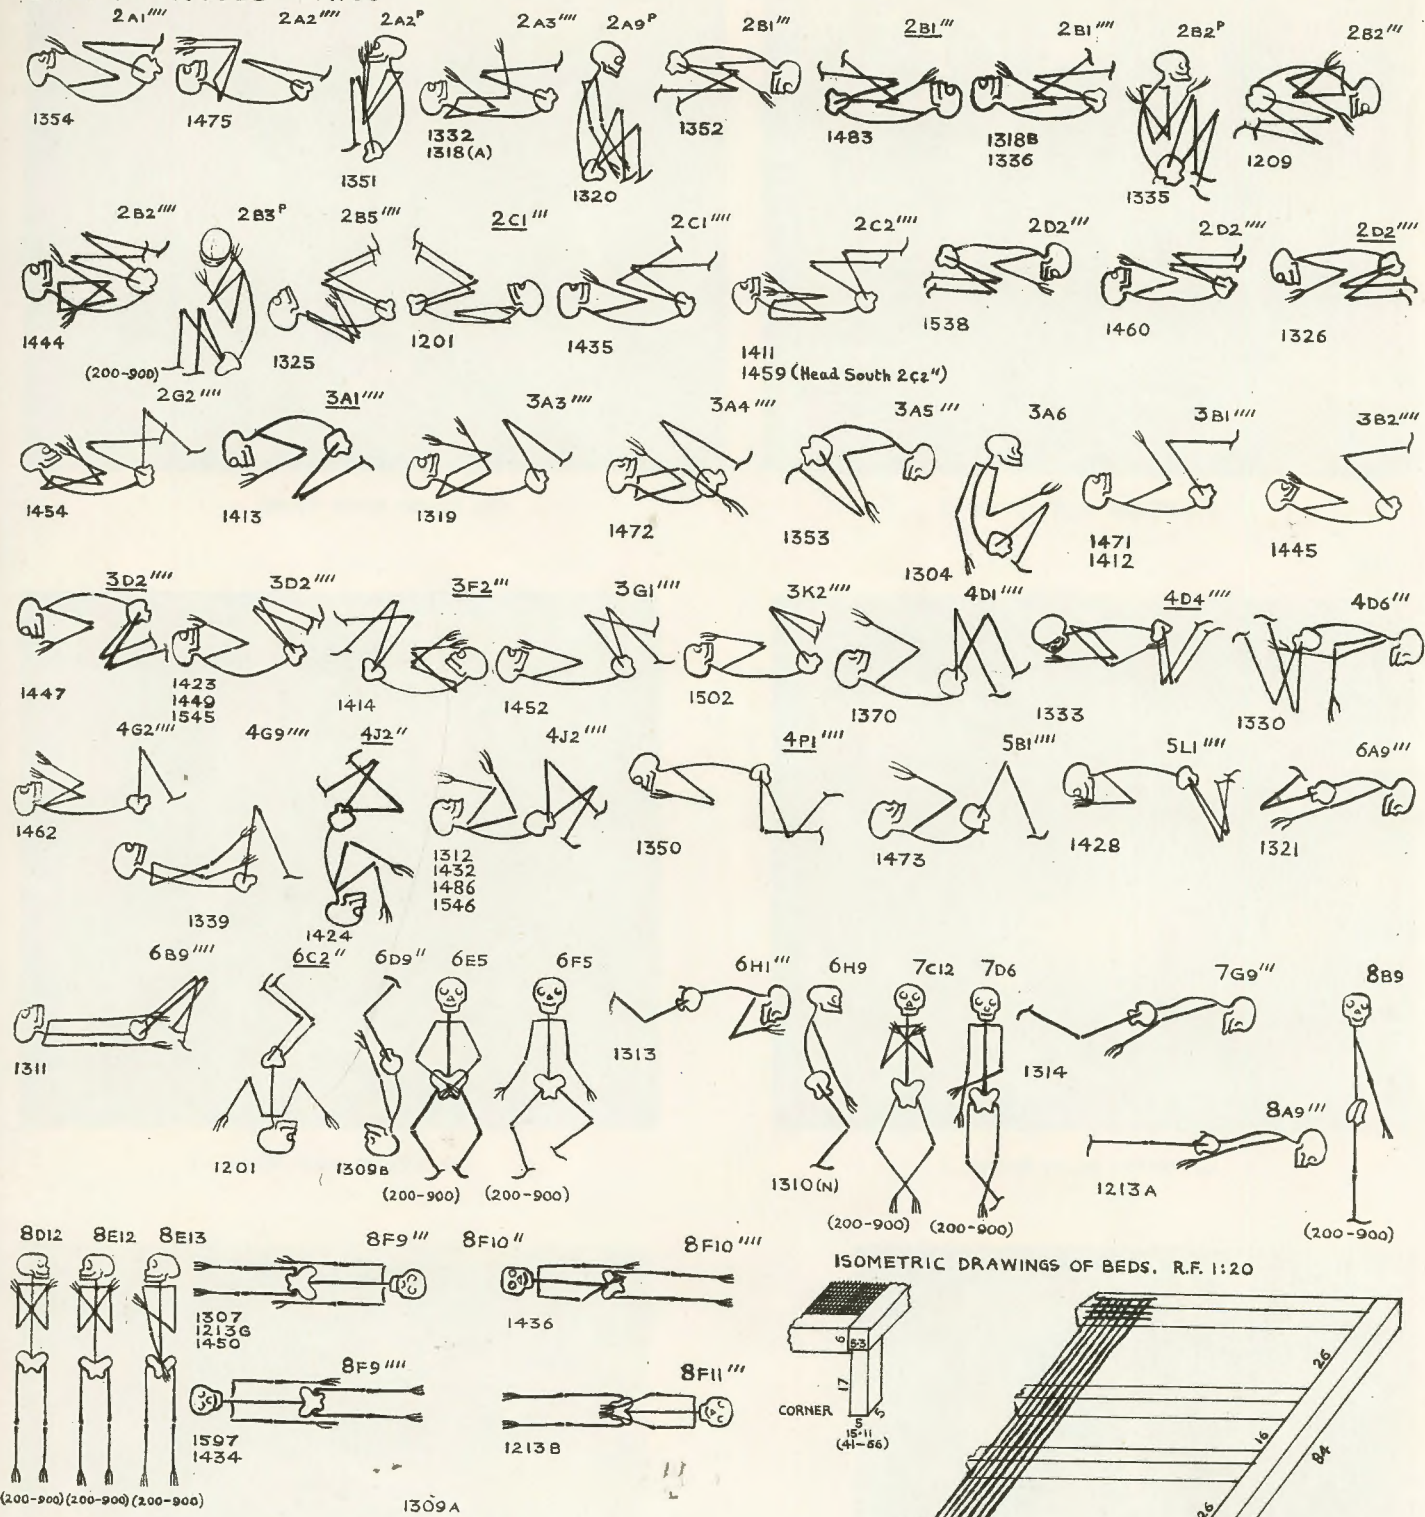 2A1''''
2A2''''
2A2P
2A3''''
2A9P
2B1'''
2B1'''
2B1''''
2B2P
2B2'''
1354
1475
1351
1332
1318(A)
1320
1352
1483
1318B
1336
1335
1209
2B2''''
2B3P
2B5''''
2C1'''
2C1''''
2C2''''
2D2'''
2D2''''
2D2''''
1444
(200-900)
1325
1201
1435
1411
1459 (Head South 2C2'')
1538
1460
1326
2G2''''
3A1''''
3A3''''
3A4''''
3A5'''
3A6
3B1''''
3B2''''
1454
1413
1319
1472
1353
1304
1471
1412
1445
3D2''''
3D2''''
3F2'''
3G1''''
3K2''''
4D1''''
4D4''''
4D6'''
1447
1423
1449
1545
1414
1452
1502
1370
1333
1330
4G2''''
4G9''''
4J2''
4J2''''
4P1''''
5B1''''
5L1''''
6A9'''
1462
1339
1424
1312
1432
1486
1546
1350
1473
1428
1321
6B9''''
6C2''
6D9''
6E5
6F5
6H1'''
6H9
7C12
7D6
7G9'''
8B9
1311
1201
1309B
(200-900)
(200-900)
1313
1310(N)
(200-900)
(200-900)
1314
8A9'''
1213A
(200-900)
8D12
8E12
8E13
8F9'''
8F10''
8F10''''
1307
1213G
1450
1436
8F9''''
8F11'''
1597
1434
1213B
(200-900)
(200-900)
(200-900)
1309A
ISOMETRIC DRAWINGS OF BEDS. R.F. 1:20
6
5·3
17
5
5
CORNER
15·11
(41-56)
26
16
84
26